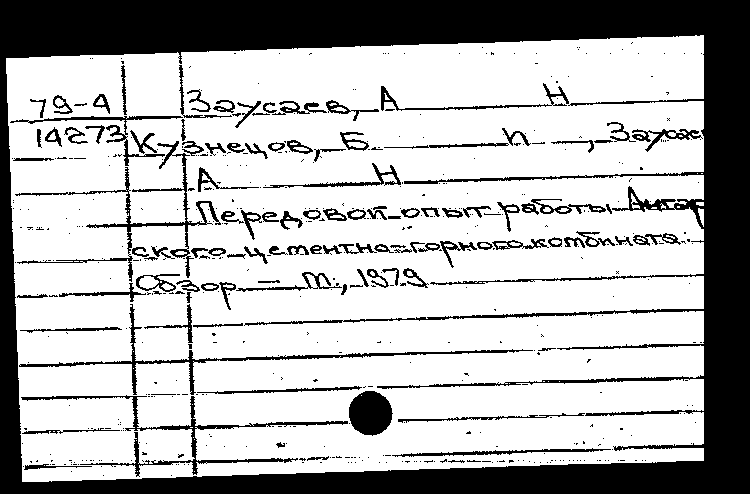 79-4 Заусаев, А Н
14273 Кузнецов, Б П , Заусаев
А Н
Передовой опыт работы Ангар
ского цементно-горного комбината.
Обзор. — М., 1979